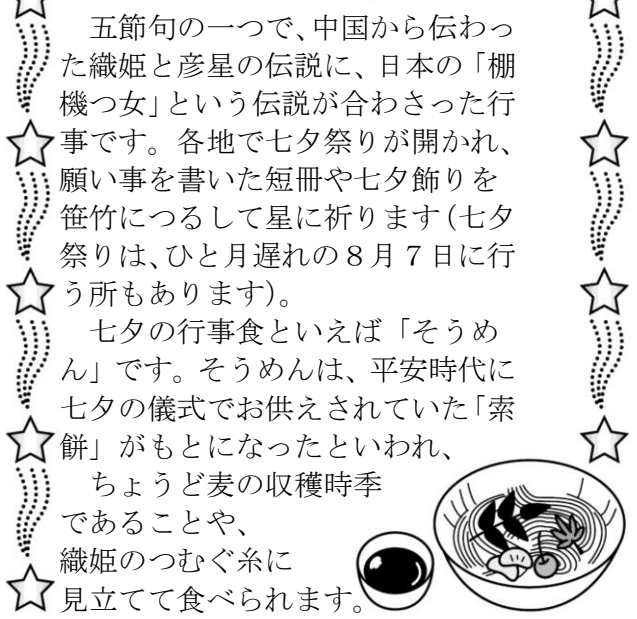 五節句の一つで、中国から伝わっ
た織姫と彦星の伝説に、日本の「棚
機つ女」という伝説が合わさった行
事です。各地で七夕祭りが開かれ、
願い事を書いた短冊や七夕飾りを
笹竹につるして星に祈ります(七夕
祭りは、ひと月遅れの8月7日に行
う所もあります)。
七夕の行事食といえば「そうめ
ん」です。そうめんは、平安時代に
七夕の儀式でお供えされていた「索
餅」がもとになったといわれ、
ちょうど麦の収穫時季
であることや、
織姫のつむぐ糸に
見立てて食べられます。